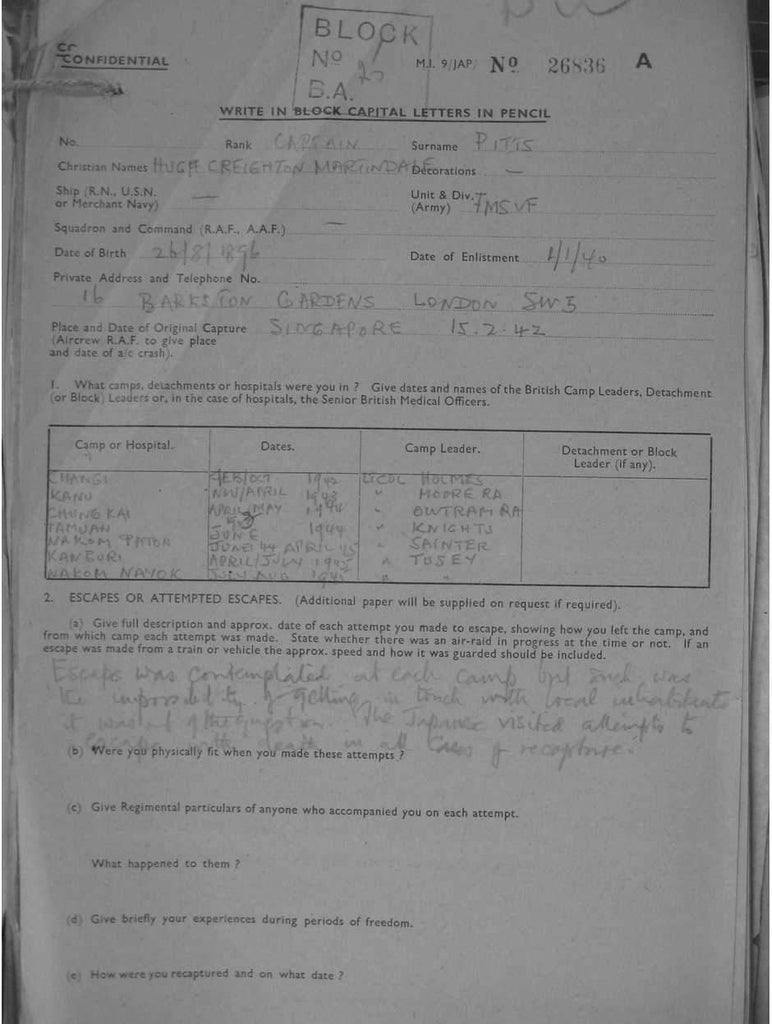 CONFIDENTIAL
BLOCK
No
B.A.
M.I. 9/JAP/ No 26836 A
WRITE IN BLOCK CAPITAL LETTERS IN PENCIL
No. Rank CAPTAIN Surname PITTS
Christian Names HUGH CREIGHTON MARTINDALE Decorations —
Ship (R.N., U.S.N. or Merchant Navy) — Unit & Div. (Army) FMSVF
Squadron and Command (R.A.F., A.A.F.) —
Date of Birth 26/8/1896 Date of Enlistment 1/1/40
Private Address and Telephone No.
16 BARKSTON GARDENS LONDON SW5
Place and Date of Original Capture SINGAPORE 15.2.42
(Aircrew R.A.F. to give place
and date of a/c crash).
1. What camps, detachments or hospitals were you in ? Give dates and names of the British Camp Leaders, Detachment
(or Block) Leaders or, in the case of hospitals, the Senior British Medical Officers.
Camp or Hospital. Dates. Camp Leader. Detachment or Block
Leader (if any).
CHANGI FEB/OCT 1942 LTCOL HOLMES
KANU NOV/APRIL 1943 " MOORE RA
CHUNG KAI APRIL MAY 1944 " OWTRAM RA
TAMUAN JUNE 1944 " KNIGHTS
NAKOM PATOM JUNE 44 APRIL 45 " SAINTER
KANBURI APRIL/JULY 1945 " TOSEY
NAKOM NAYOK JULY AUG 1945 " "
2. ESCAPES OR ATTEMPTED ESCAPES. (Additional paper will be supplied on request if required).
(a) Give full description and approx. date of each attempt you made to escape, showing how you left the camp, and
from which camp each attempt was made. State whether there was an air-raid in progress at the time or not. If an
escape was made from a train or vehicle the approx. speed and how it was guarded should be included.
Escape was contemplated at each camp but such was
the impossibility of getting in touch with local inhabitants
it was out of the question. The Japanese visited attempts to
escape with death in all cases of recapture.
(b) Were you physically fit when you made these attempts ?
(c) Give Regimental particulars of anyone who accompanied you on each attempt.
What happened to them ?
(d) Give briefly your experiences during periods of freedom.
(e) How were you recaptured and on what date ?